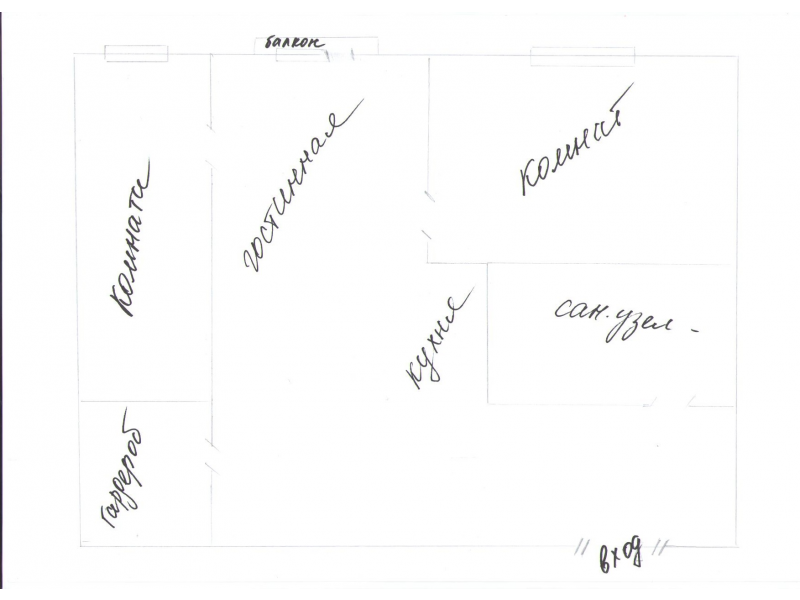 балкон
комната
гостинная
комнат
кухня
сан.узел -
гардероб
вход